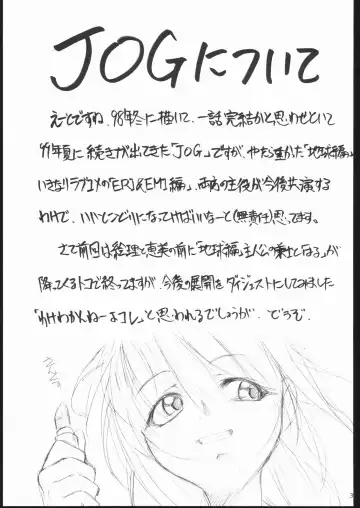 JOGについて
えーとですね、98年冬に描いて、一話完結かと思わせといて
99年夏に続きが出てきた「JOG」ですが、やたら重かった「地球編」、
いきなりラブコメの「ERI&EMI編」、両者の主役が今後共演する
わけで、いいとこどりになってけばいいなーと(無責任)思ってます。
さて前回は絵理と恵美の前に「地球編」主人公の乗士となる♂が
降ってくるトコで終ってますが、今後の展開をダイジェストにしてみました
「わけわかんねーよコレ」と思われるでしょうが、どうぞ。
3